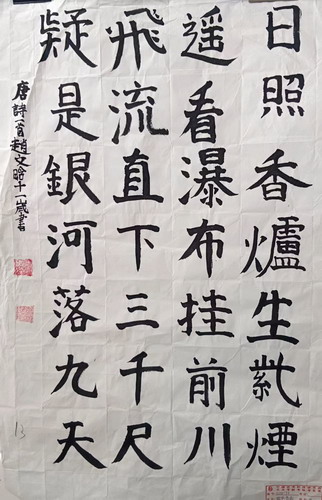 日照香爐生紫煙
遥看瀑布挂前川
飛流直下三千尺
疑是銀河落九天
唐詩一首趙文晗十一歲書
13